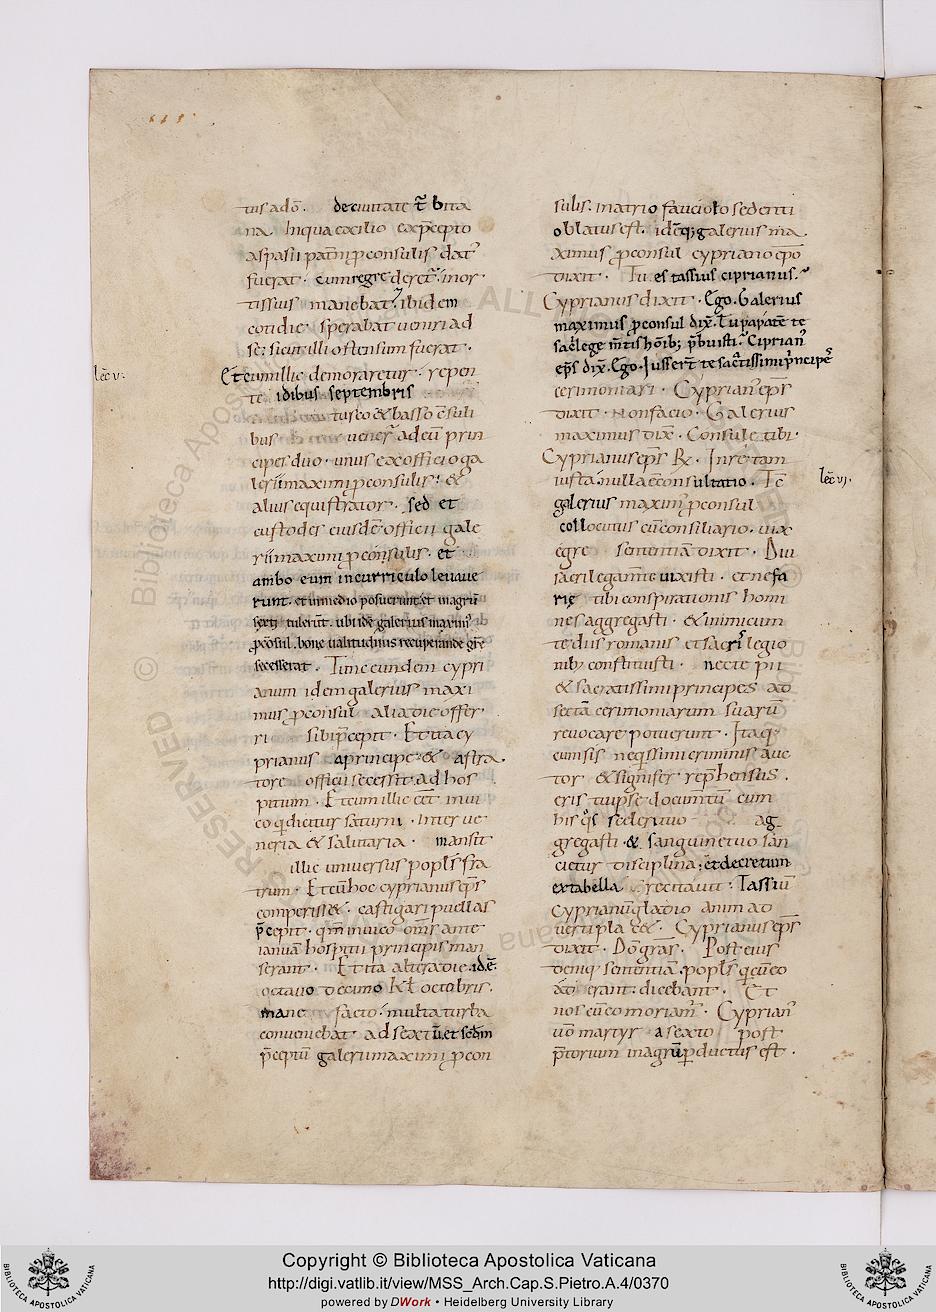 tus adō. de ciuitate c̄ bita
na. In qua exilio ex p̄cepto
aspasii pat̄ni p̄consulis dat᷒
fuerat. cum regrederet᷒. in or
tis suis manebat. ibidem
cotidie sperabat ueniri ad
se: sicut illi ostensum fuerat.
lec̄ v.
Et cum illic demoraretur. repen
te idibus septembris
tusco & basso c̄suli
bus uener᷒ ad eū prin
cipes duo. unus ex officio ga
lerii maximi p̄consulis. &
alius equistrator. sed et
custodes eiusdē officii gale
rii maximi p̄consulis. et
ambo eum in curriculo leuaue
runt. et in medio posuerunt. et in agrū
sexti tulerūt. ubi idē galerius maxim᷒
p̄cōsul. bone ualitudinis recuperande grē
secesserat. Tunc eundem cypri
anum idem galerius maxi
mus p̄consul alia die offer
ri sibi p̄cepit. Et ita cy
prianus a principe & astra
tore officii secessit. ad hos
pitium. Et cum illic eēt. in ui
co q̄ dicitur saturni. inter ue
neria & salutaria. mansit
illic uniuersus popl̄s fra
trum. Et cū hoc cyprianus ep̄s
comperiss&. castigari puellas
p̄cepit. qm̄ in uico om̄s ante
ianuā hospitii principis man
serant. Et ita altera die. id. ē.
octauo decimo Kl̄ octobris.
mane facto. multa turba
conueniebat ad sextū. et scd̄m
p̄ceptū galerii maximi p̄con
sulis. in atrio sauciolo sedenti
oblatus est. idēq; galerius ma
ximus p̄consul cypriano ep̄o
dixit. Tu es tassius ciprianus.
Cyprianus dixit. Ego. Galerius
maximus p̄consul dix̄. Tu papatē te
sac̄lege m̄tis hōib; p̄buisti. Ciprian᷒
ep̄s dix̄. Ego. Iusser̄t te sac̄tissimi p̄ncipes
cerimoniari. Cyprian᷒ ep̄s
dixit. Non facio. Galerius
maximus dix̄. Consule tibi.
Cyprianus ep̄s R̄. In re tam
iusta. nulla ē consultatio. Tc̄
lec̄ vi.
galerius maxim᷒ p̄consul
collocutus cū consiliario. uix
egre sententiā dixit. Diu
sacrilega m̄te uixisti. et nefa
rię tibi conspirationis homi
nes aggregasti. & inimicum
te diis romanis et sacrilegio
nib; constituisti. nec te pii
& sacratissimi principes ad
sectā cerimoniarum suarū
reuocare potuerunt. Itaq;
cum sis nequissimi criminis auc
tor & signifer rep̄hensus.
eris tu ipse documtū cum
his q̄s scelere tuo ag
gregasti. & sanguine tuo san
cietur disciplina. et decretum
ex tabella recitauit. Tassiū
Cyprianū gladio animad
uerti plac&. Cyprianus ep̄s
dixit. Dō gr̄as. Post eius
deniq; sententiā. popl̄s q̄ cū eo
ad erant. dicebant. Et
nos cū eo moriam᷒. Cyprian᷒
uō martyr a sexto post
p̄torium in agrū p̄ductus est.
Copyright © Biblioteca Apostolica Vaticana
http://digi.vatlib.it/view/MSS_Arch.Cap.S.Pietro.A.4/0370
powered by DWork • Heidelberg University Library